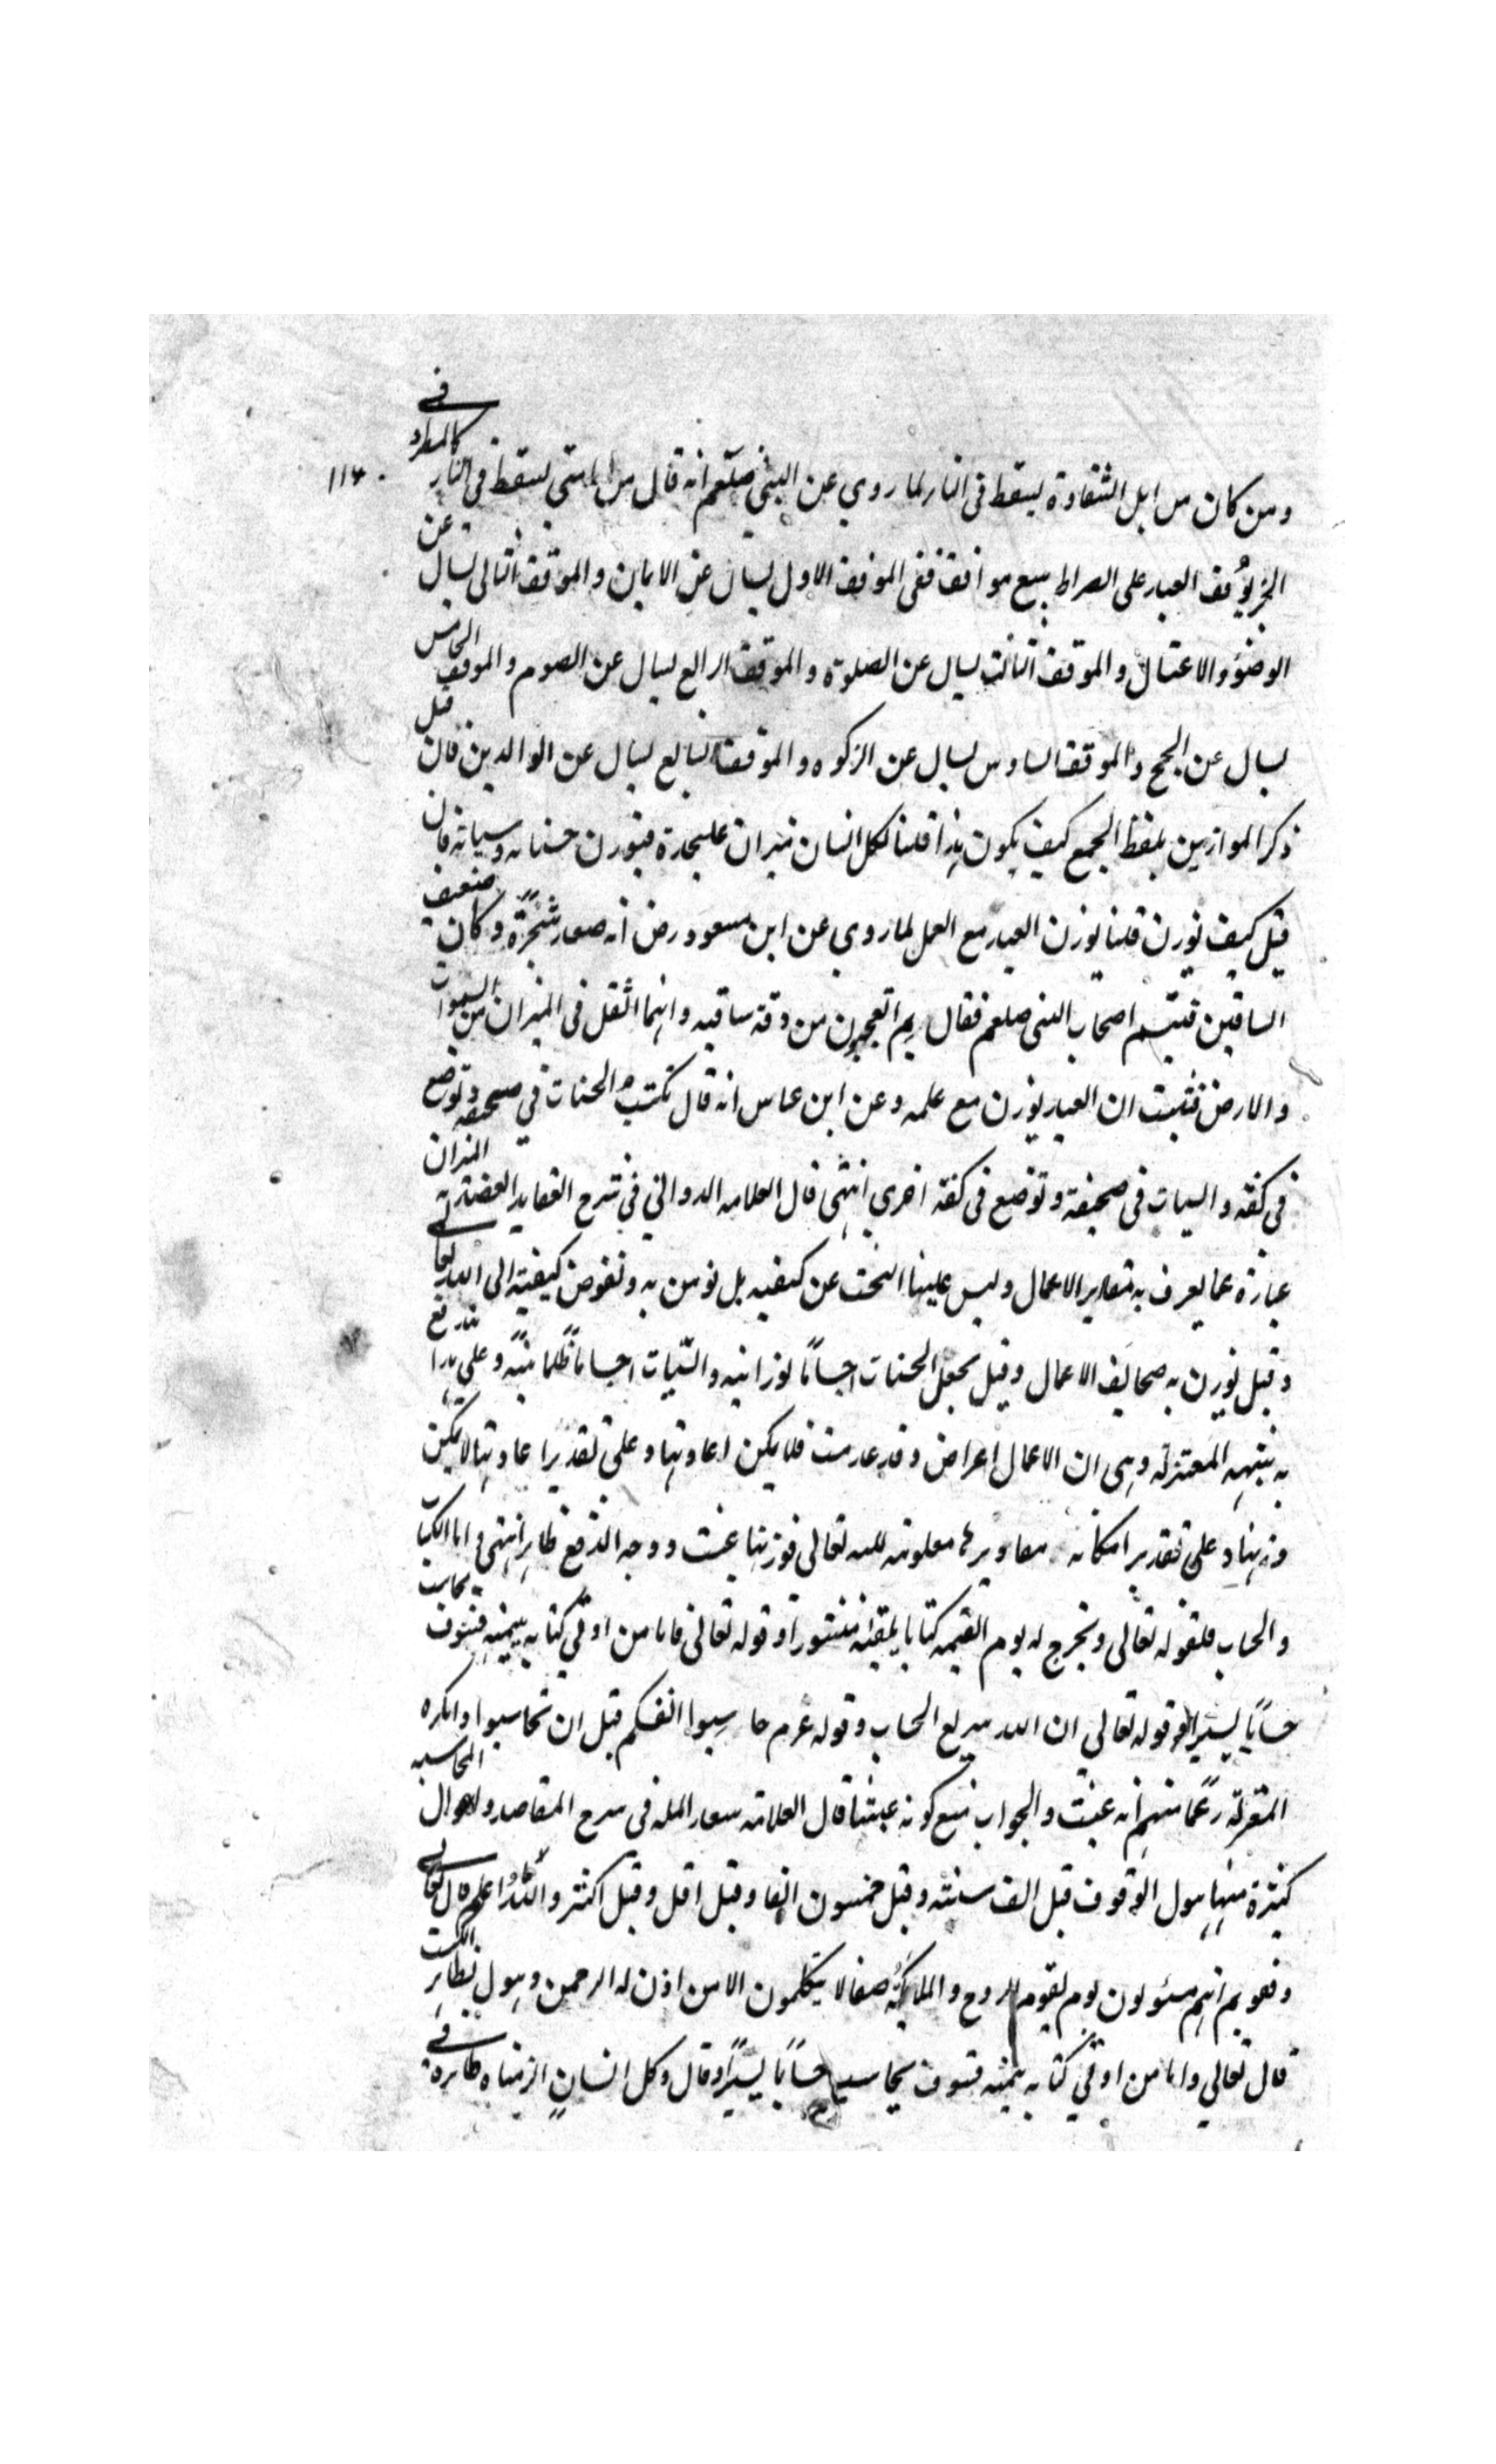 ومن كان من اهل الشقاوة يسقط فى النار لما روي عن النبي صلعم انه قال من امتي يسقط فى النار كالمطر و فى
الخبر يوقف العباد على الصراط سبع مواقف ففى الموقف الاول يسال عن الايمان والموقف الثانى يسال عن
الوضوء والاغتسال والموقف الثالث يسال عن الصلوة والموقف الرابع يسال عن الصوم والموقف الخامس
يسال عن الحج والموقف السادس يسال عن الزكوة والموقف السابع يسال عن الوالدين فان قيل
ذكر الموازين بلفظ الجمع كيف يكون هذا قلنا لكل انسان ميزان عليحدة فيوزن حسناته وسياته فان
قيل كيف يوزن قلنا يوزن العبد مع العمل لما روي عن ابن مسعود رض انه صعد شجرة وكان ضعيف
الساقين فتبسم اصحاب النبى صلعم فقال بم اتعجبون من دقة ساقيه وانهما اثقل فى الميزان من السموات
والارض فثبت ان العبد يوزن مع عمله وعن ابن عباس انه قال تكتب الحسنات في صحيفة وتوضع
فى كفة والسيات فى صحيفة وتوضع فى كفة اخرى انتهى قال العلامه الدواني في شرح العقايد العضديه الميزان
عبارة عما يعرف به مقادير الاعمال وليس علينا البحث عن كيفيه بل نومن به ونفوض كيفيته الى الله تعالى
وقيل يوزن به صحايف الاعمال وقيل تجعل الحسنات اجسامًا نورانيه والسيات اجسامًا ظلمانيه وعلى هذا تندفع
به شبهه المعتزلة وهى ان الاعمال اعراض وقد عدمت فلا يمكن اعادتها وعلى تقدير اعادتها لا يمكن
وزنها وعلى تقدير امكانه مقاديرها معلومة لله تعالى فوزنها عبث ووجه الدفع ظاهر انتهى واما الكتاب
والحساب فلقوله تعالى ونخرج له يوم القيمه كتابا يلقيه منشورا وقوله تعالى فاما من اوتي كتابه بيمينه فسوف يحاسب
حسابًا يسيرا وقوله تعالي ان الله سريع الحساب وقوله عم حاسبوا انفسكم قبل ان تحاسبوا وانكره
المعتزلة زعمًا منهم انه عبث والجواب منع كونه عبثا قال العلامه سعد المله فى شرح المقاصد ولاهوال المحاسبه
كثيرة منها هول الوقوف قيل الف سنته وقيل خمسون الفا وقيل اقل وقيل اكثر والله اعلم قال تعالى
وقفوهم انهم مسئولون يوم يقوم الروح والملايكة صفا لا يتكلمون الا من اذن له الرحمن وهول تطاير الكتب
قال تعالي واما من اوتي كتابه بيمينه فسوف يحاسب حسابًا يسيرًا وقال وكل انسان الزمناه طايره فى